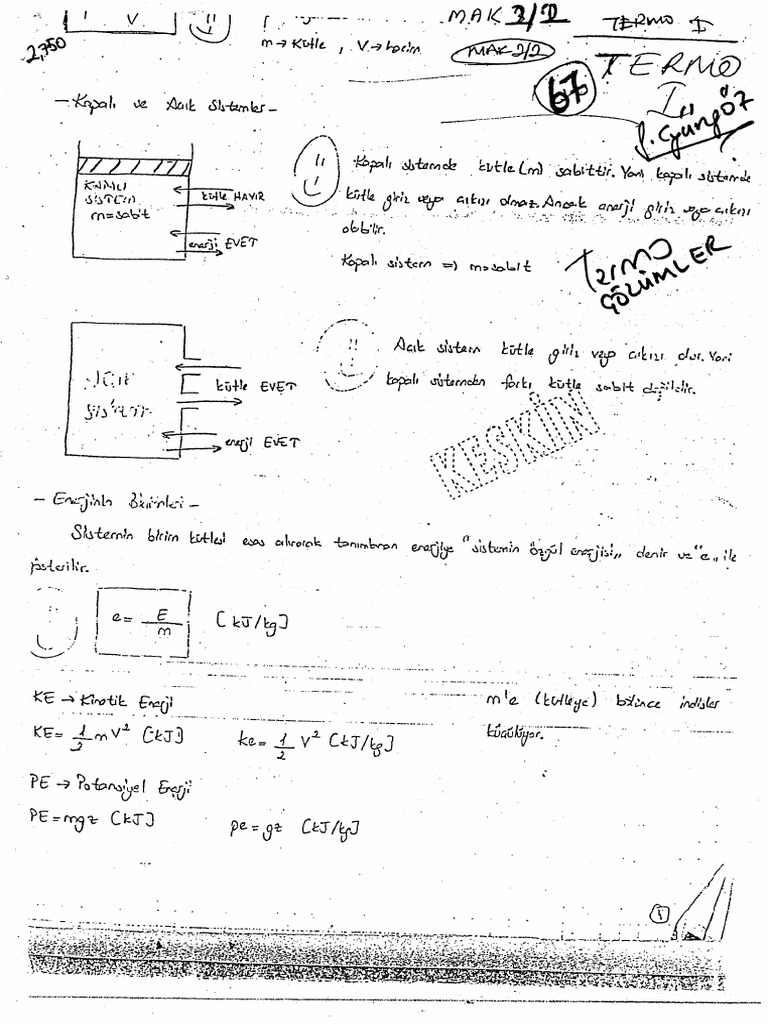 V
2,750
m → kütle, V → hacim
MAK 2/2
MAK 2/2
TERMO I
67
TERMO
I
- Kapalı ve Açık Sistemler -
KAPALI
SİSTEM
m=sabit
kütle HAYIR
enerji EVET
Kapalı sistemde kütle (m) sabittir. Yani kapalı sistemde
kütle giriş veya çıkışı olmaz. Ancak enerji giriş veya çıkışı
olabilir.
Kapalı sistem => m=sabit
Termo
ÇÖZÜMLER
AÇIK
SİSTEM
kütle EVET
enerji EVET
Açık sistem kütle giriş veya çıkışı olur. Yani
kapalı sistemden farkı kütle sabit değildir.
KESKİN
- Enerjinin Birimleri -
Sistemin birim kütlesi esas alınarak tanımlanan enerjiye "sistemin özgül enerjisi" denir ve "e" ile
gösterilir.
e = E/m [kJ/kg]
KE → Kinetik Enerji
m'e (kütleye) bölünce indisler
küçülüyor.
KE = 1/2 mV² [kJ] ke = 1/2 V² [kJ/kg]
PE → Potansiyel Enerji
PE = mgz [kJ] pe = gz [kJ/kg]
1